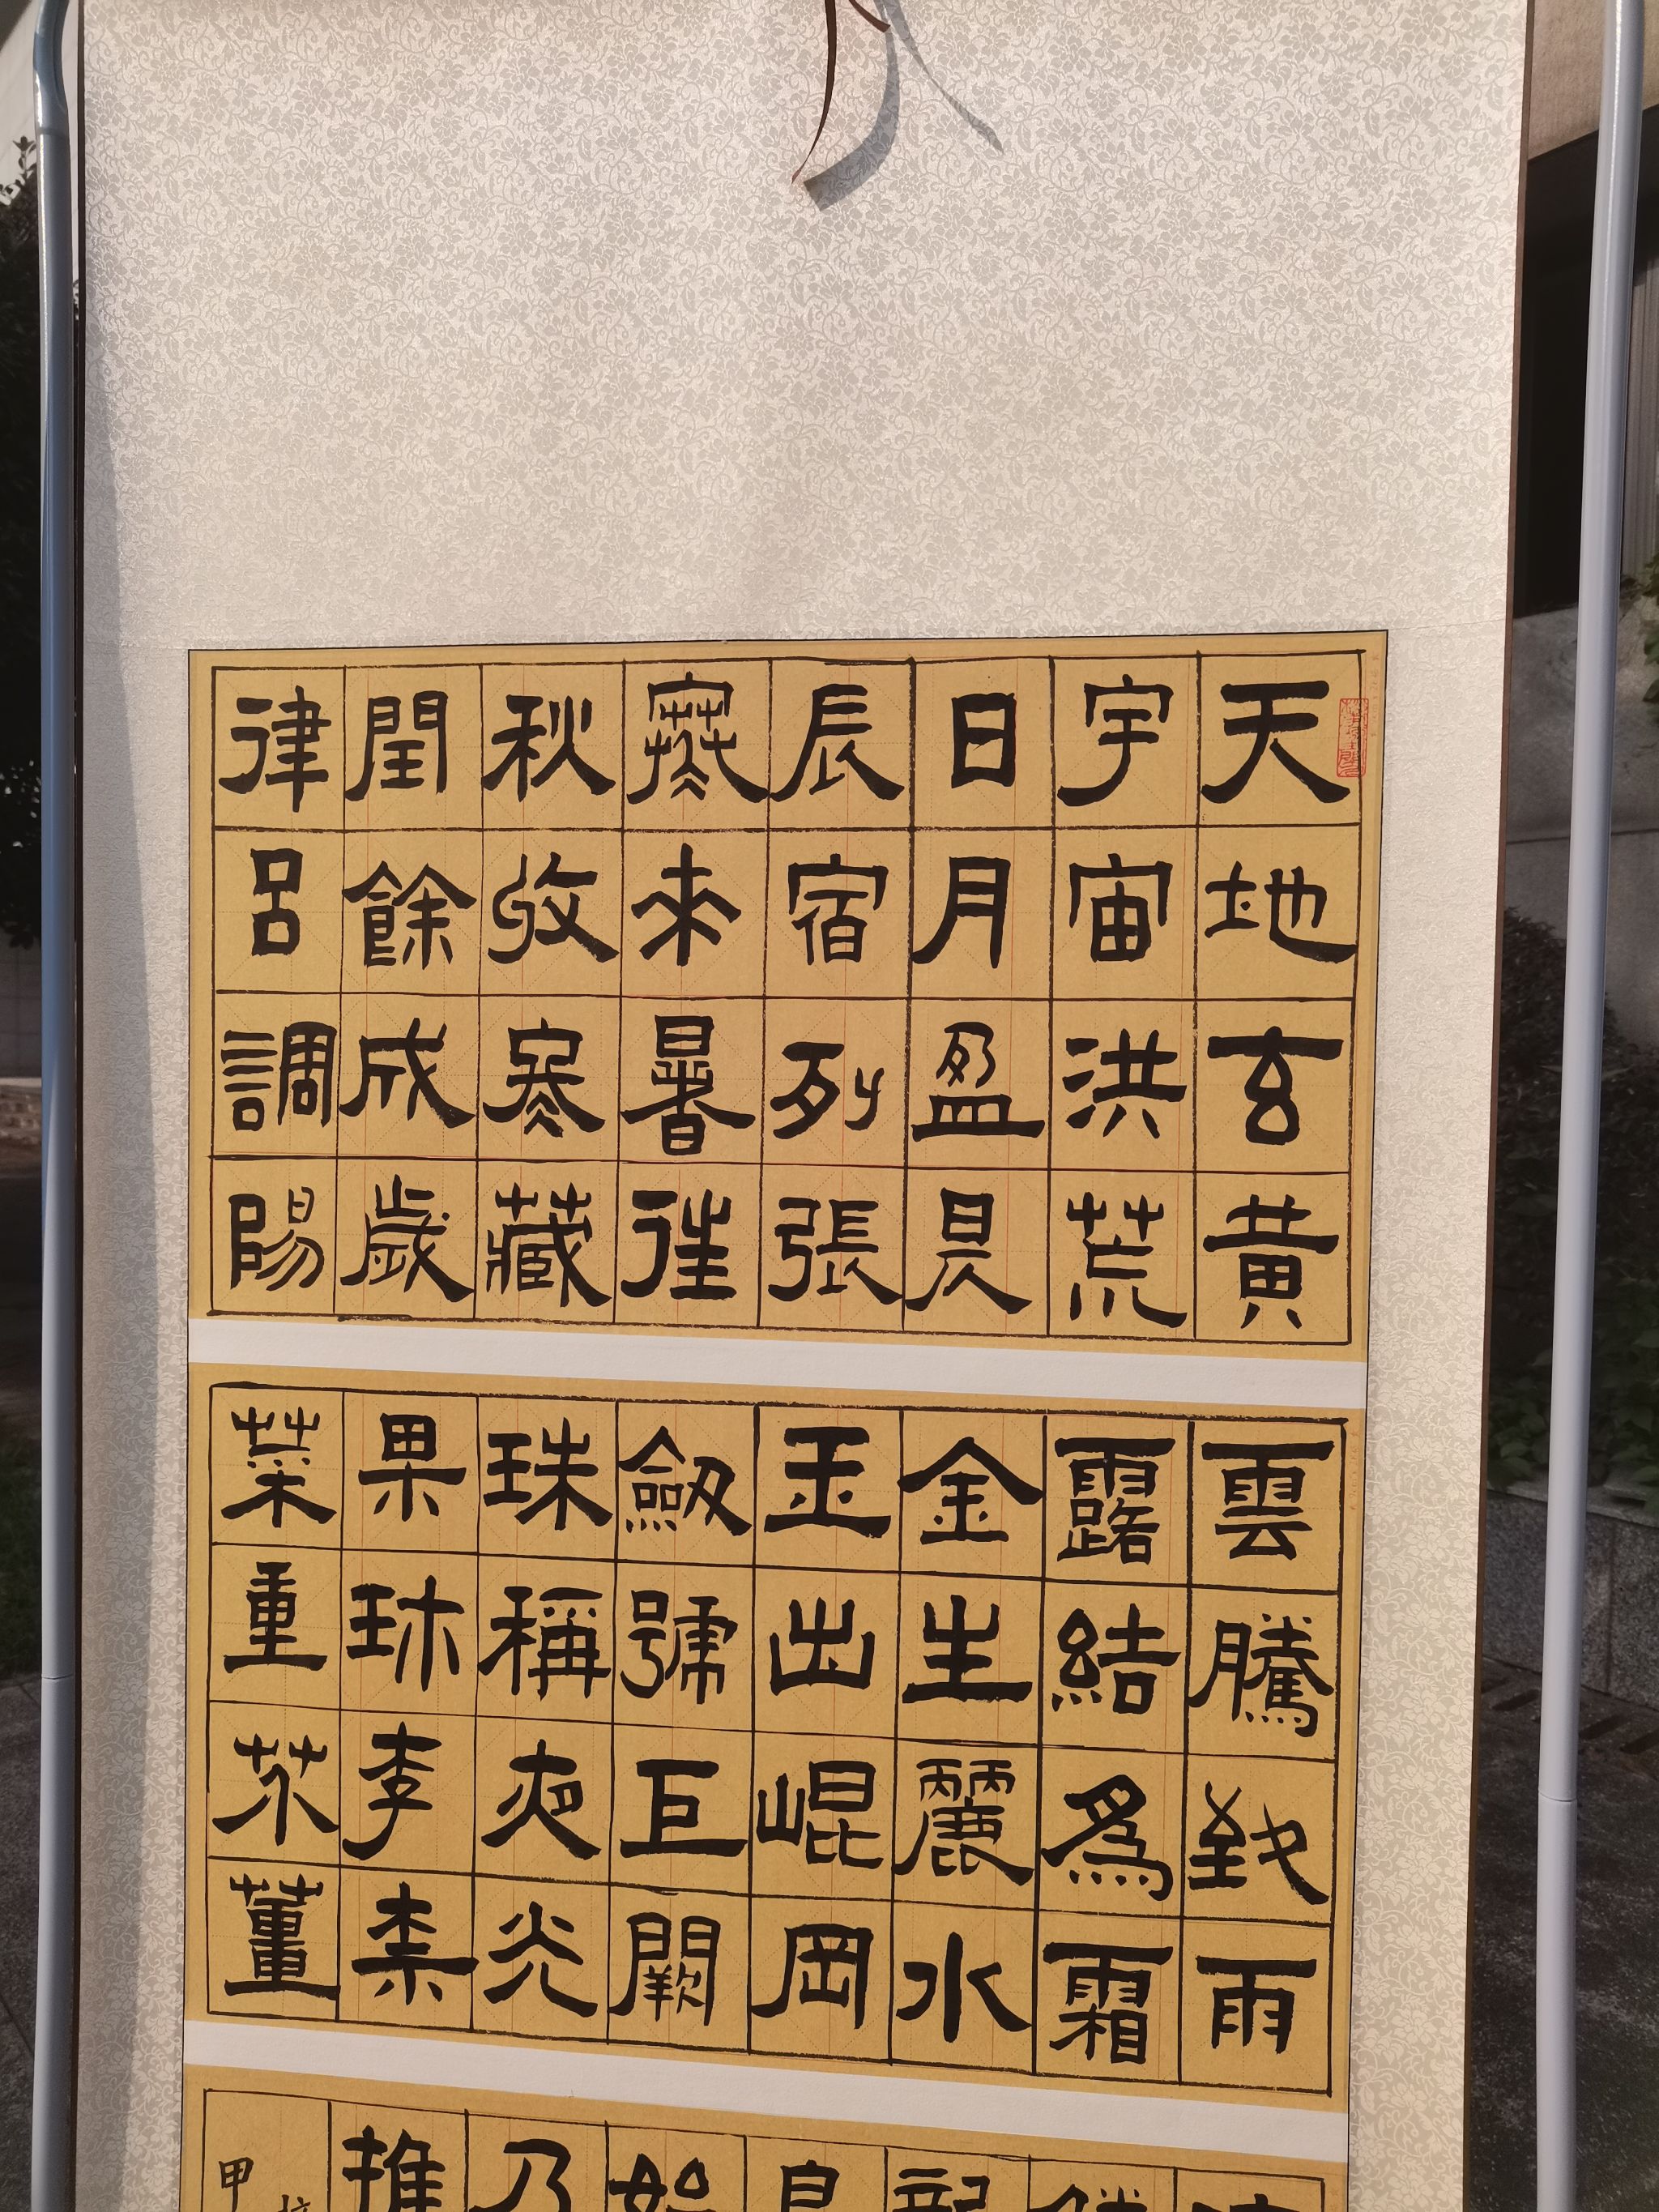 天地玄黄
宇宙洪荒
日月盈昃
辰宿列張
寒来暑往
秋收冬藏
閏餘成歲
律呂調陽
雲騰致雨
露結爲霜
金生麗水
玉出崐岡
劔號巨闕
珠稱夜光
果珎李柰
菜重芥薑
龍
始
乃
推
甲